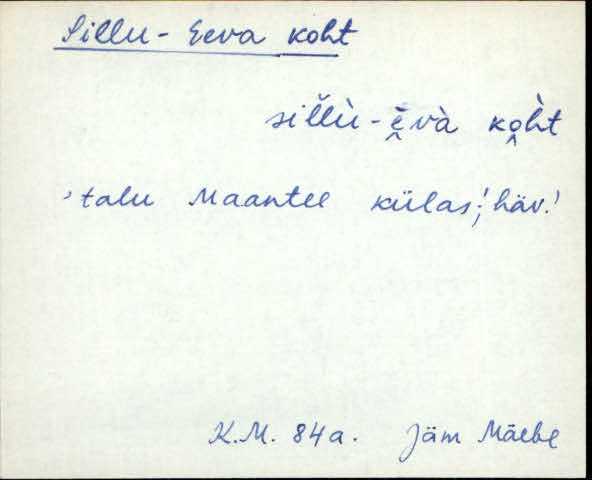 Sillu-Eeva koht
sil̆l̆ù-è̬và ko̬h̀t
'talu Maantee külas; häv.'
K.M. 84a. Jäm Mäebe